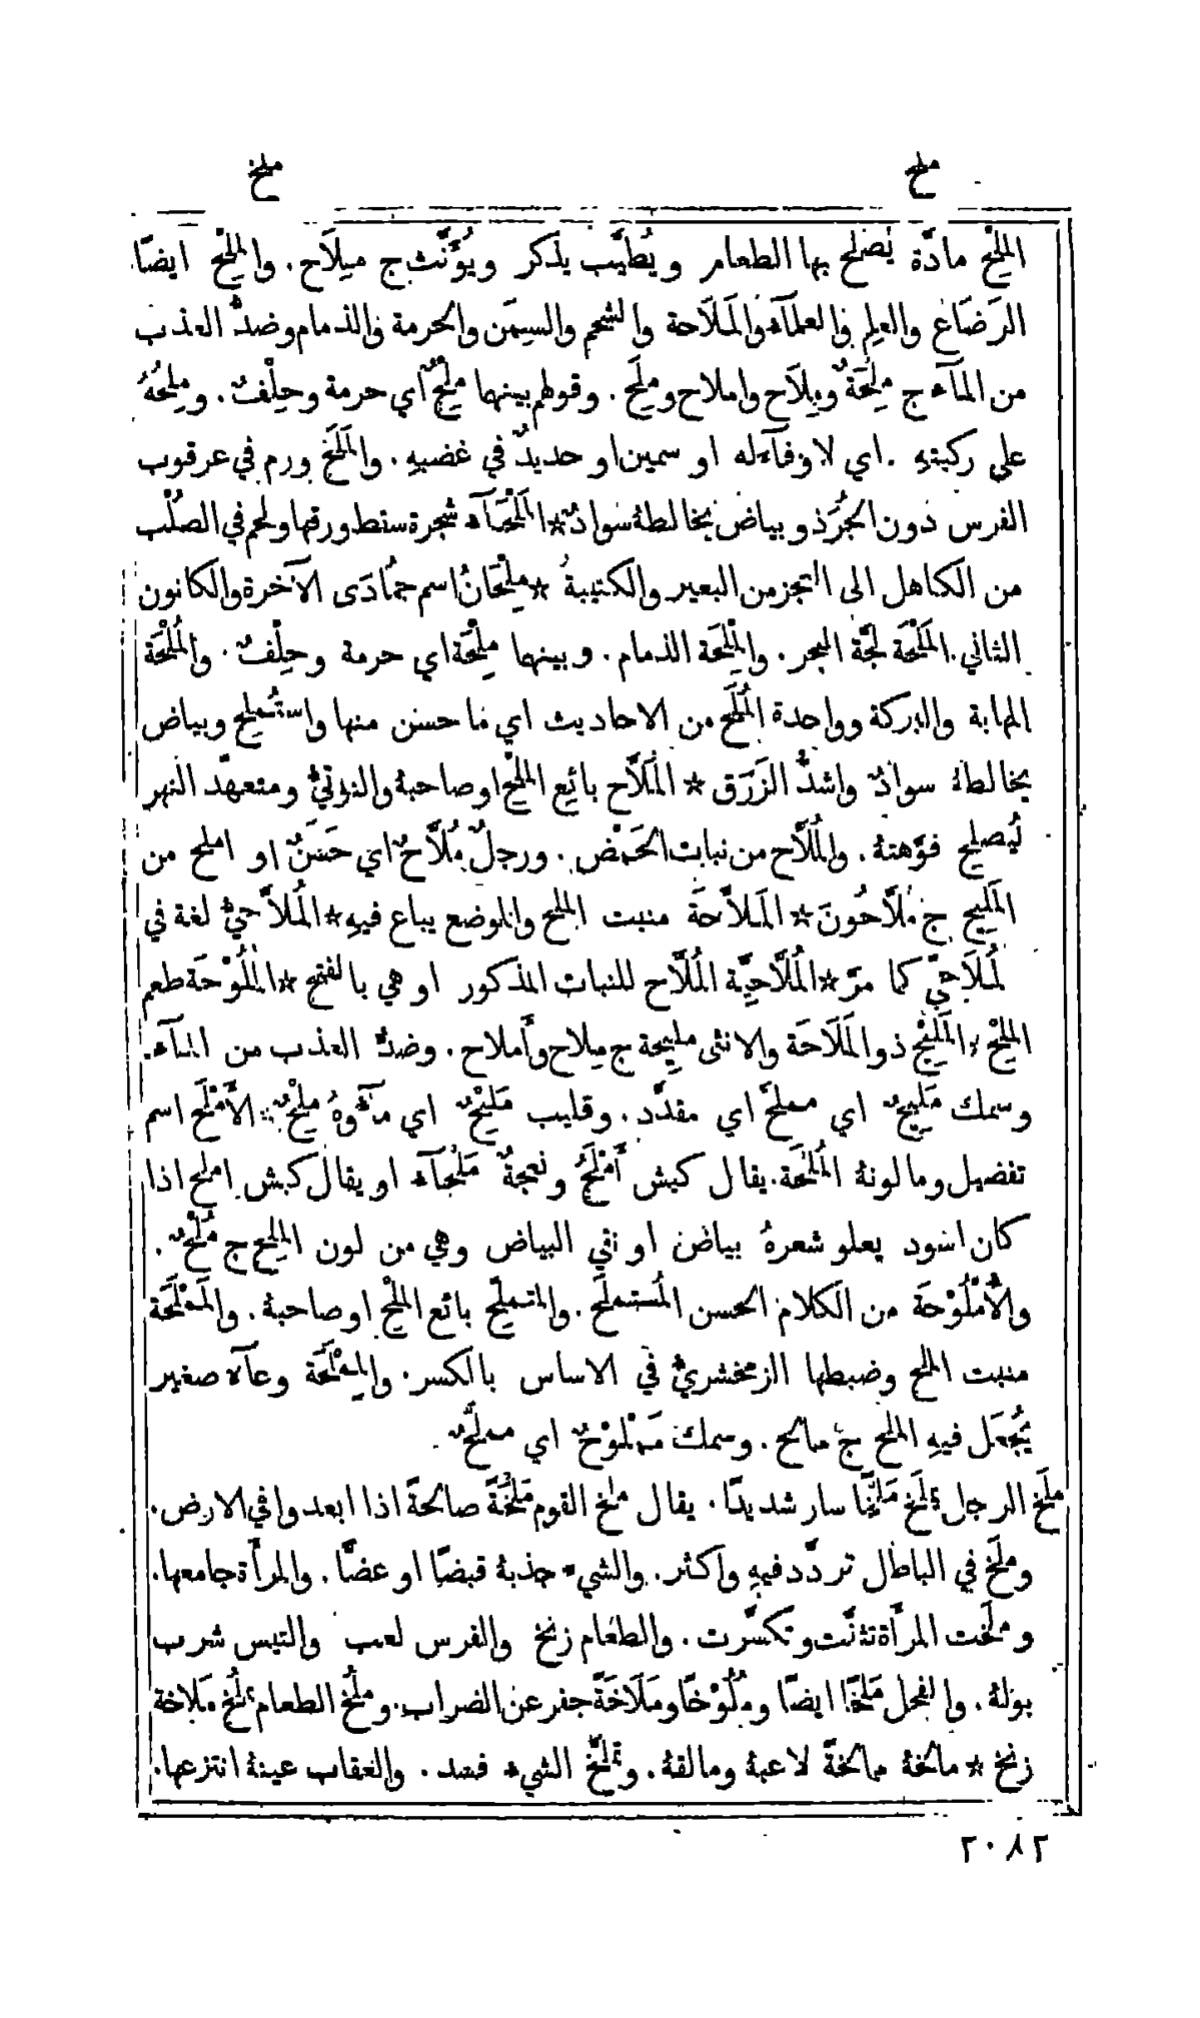 ملح ملخ
المِلْح مادّة يُصلَح بها الطعام ويُطيَّب يذكر ويُؤَنَّث ج مِيلَاح. والمِلْح ايضًا
الرَضَاع والعِلم والعلمآء والمَلَاحة والشحم والسِمَن والحرمة والذمام وضدُّ العذب
من المآء ج مِلَحَةٌ ومِلَاح واملاح ومِلَح. وقولهم بينهما مِلْحٌ اي حرمة وحِلْفٌ. ومِلحُهُ
على ركبتهِ. اي لا وفآء له او سمين او حديدٌ في غضبهِ. والمَلَح ورم في عرقوب
الفرس دون الجُرَذ وبياض يخالطهُ سوادٌ * المَلْحَآء شجرة سقط ورقها ولحم في الصُلْب
من الكاهل الى العجز من البعير والكتيبةُ * مِلْحَانُ اسم جُمَادَى الآخرة والكانون
الثاني. المَلْحَة لجَّة البحر. والمِلْحَة الذمام. وبينهما مِلْحَة اي حرمة وحِلْفٌ. والمُلْحَة
المهابة والبركة وواحدة المُلَح من الاحاديث اي ما حسن منها واستُملِح وبياض
يخالطهُ سوادٌ واشدُّ الزَرَق * المَلَّاح بائِع المِلْح او صاحبهُ والنوتيُّ ومتعهّد النهر
ليُصلِح فوَّهتهُ. والمُلَّاح من نبات الحَمْض. ورجلٌ مُلَّاحٌ اي حَسَنٌ او املح من
المَلِيح ج مُلَّاحُونَ * المَلَّاحَة منبت الملح والموضع يباع فيهِ * المُلَّاحيُّ لغة في
لمُلَاحِيّ كما مرَّ * المُلَّاحِيَّة المُلَّاح للنبات المذكور او هي بالفتح * المُلُوْحَة طعم
المِلْح * المَلِيْح ذو المَلَاحَة والانثى مليحة ج مِلاح وأَملاح. وضدُّ العذب من المآء.
وسمك مَلِيحٌ اي مملَّح اي مقدَّد. وقليب مَلِيْحٌ اي مآؤهُ مِلْحٌ * الأَمْلَح اسم
تفضيل وما لونهُ المُلْحَة. يقال كبش أَمْلَحُ ونعجةٌ مَلْحَآء او يقال كبش املح اذا
كان اسود يعلو شعرهُ بياض او نقي البياض وهي من لون الملح ج مُلْحٌ.
والأُمْلُوْحَة من الكلام الحسن المُستملَح. والمتملِّح بائع المِلْح او صاحبهُ. والمَمْلَحَة
منبت الملح وضبطها الزمخشريُّ في الاساس بالكسر. والمِمْلَحَة وعآء صغير
يُجعَل فيهِ الملح ج ممالح. وسمك مَمْلُوْحٌ اي مملَّحٌ.
ملَخ الرجل يملَخ مَلْخًا سار شديدًا. يقال ملخ القوم مَلْخَةً صالحةً اذا ابعدوا في الارض.
وملَخ في الباطل تردَّد فيهِ واكثر. والشيء جذبهُ قبضًا او عضًّا. والمرأَة جامعها.
وملَخت المرأَة تثنَّت وتكسَّرت. والطعام زنخ والفرس لعب والتيس شرب
بولهُ. والفحل مَلْخًا ايضًا ومُلُوْخًا ومَلَاخَةً جفر عن الضراب. وملُخ الطعام يملُخ مَلاخة
زنخ * مالخهُ ممالخةً لاعبهُ ومالقهُ. وتملَّخ الشيء فسد. والعقاب عينهُ انتزعها.
٢٠٨٢